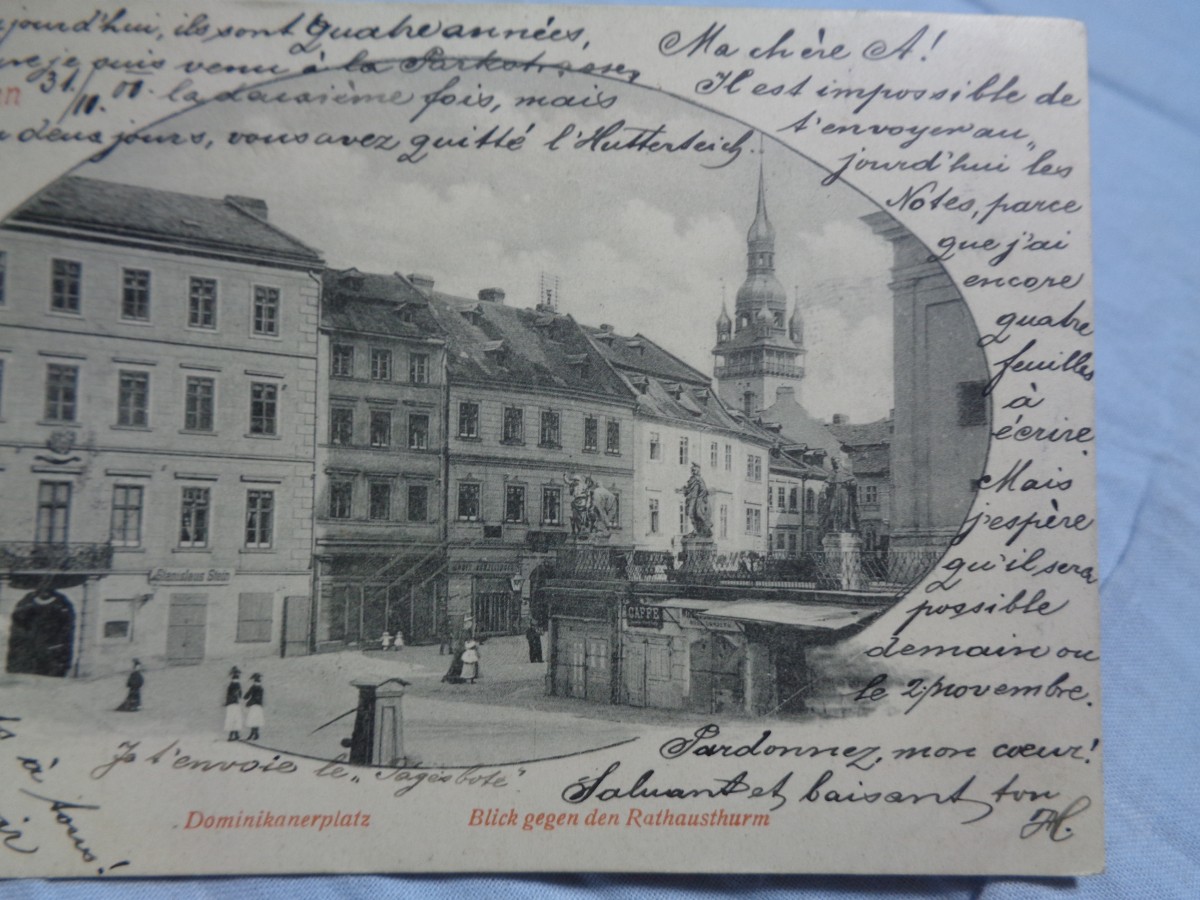 jourd'hui, ils sont quatre années,
je suis venu à la Parkstrasse,
31/10. 01. la dernière fois, mais
deux jours, vous avez quitté l'Hutterteich.
en
Ma chère A!
Il est impossible de
t'envoyer au„
jourd'hui les
Notes, parce
que j'ai
encore
quatre
feuilles
à
écrire.
Mais
j'espère
qu'il sera
possible
demain ou
le 2. novembre.
Pardonnez, mon cœur!
Saluant et baisant ton
H.
Je t'envoie le „Tagesbote"
à
tous!
Stanislaus Stein
CAFFE
Dominikanerplatz
Blick gegen den Rathausthurm